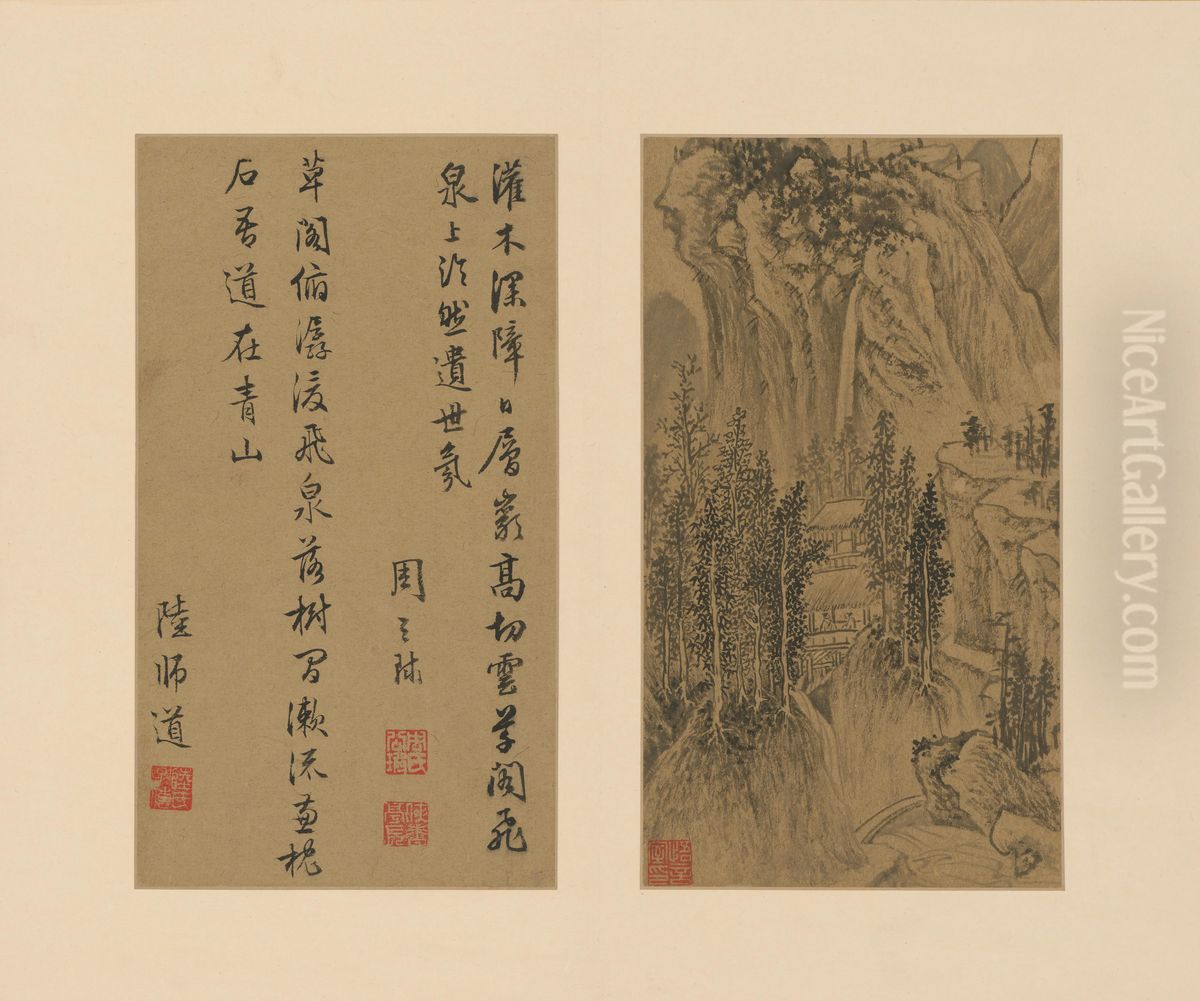 灌木深障日層巖高切雲草閣飛
泉上泠然遺世氛
周天球
周氏公瑕
草閣俯潺湲飛泉落樹間漱流兼枕
石吾道在青山
陸師道
悟言室印
NiceArtGallery.com